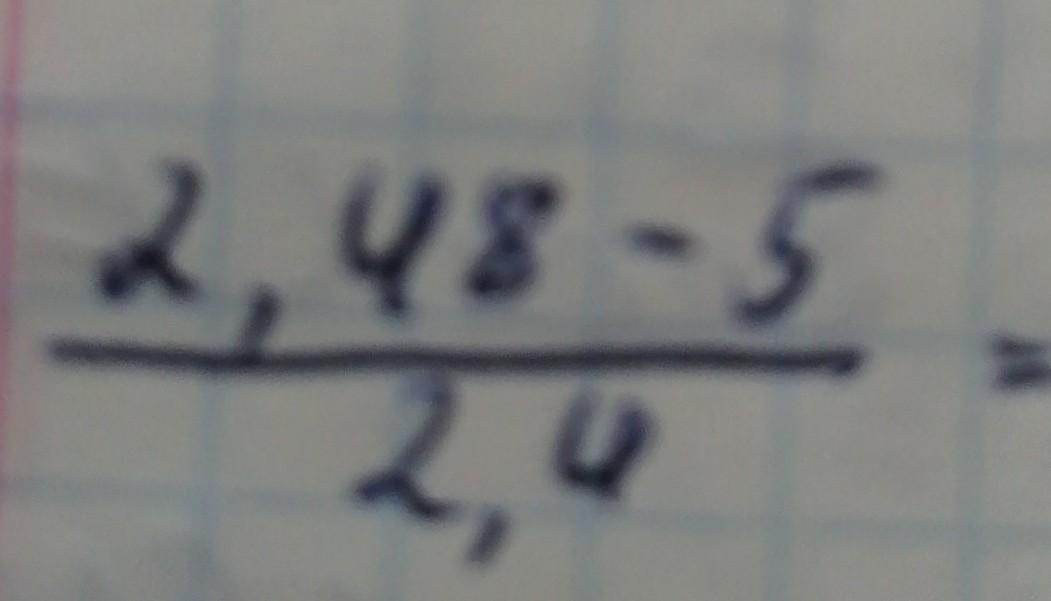 2,48 - 5
2,4
=